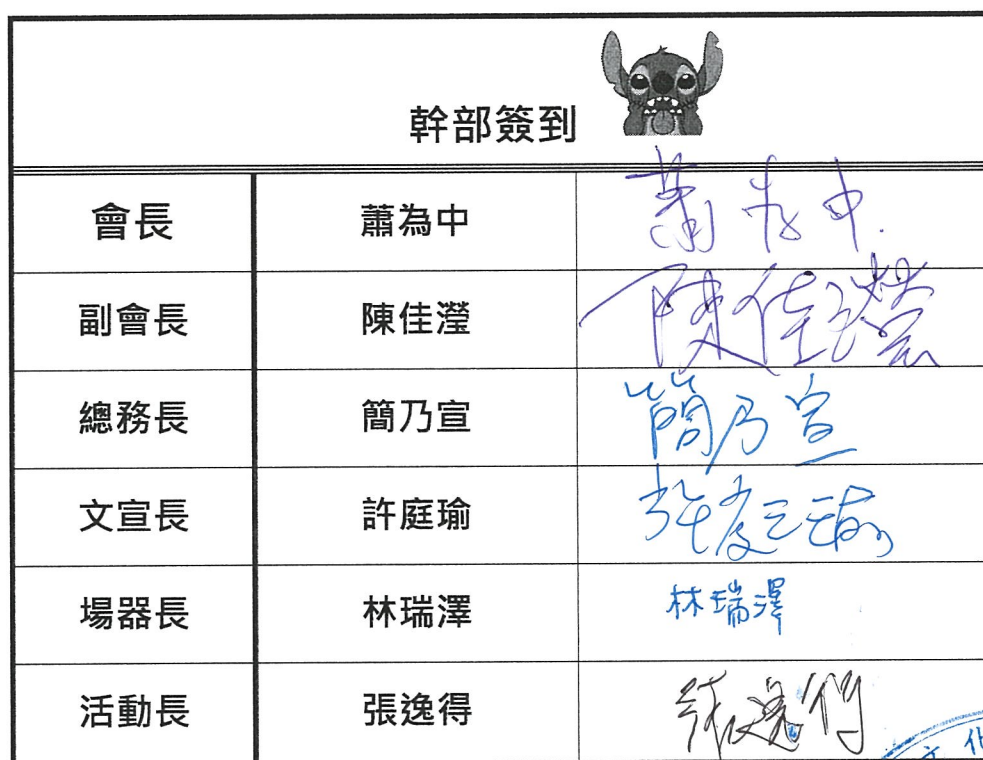 幹部簽到
會長 蕭為中 蕭為中
副會長 陳佳瀅 陳佳瑩
總務長 簡乃宣 簡乃宣
文宣長 許庭瑜 許庭瑜
場器長 林瑞澤 林瑞澤
活動長 張逸得 張逸得
文化